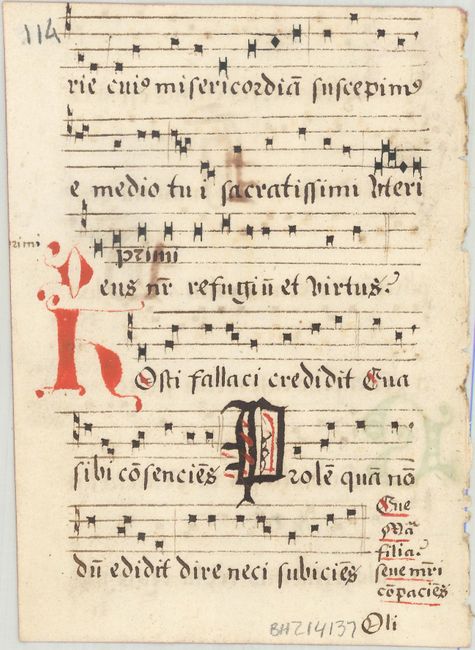 114
rie cui⁹ misericordiā suscepim⁹
e medio tui sacratissimi Vteri
primi
Deus nr̄ refugiū et virtus.
Hosti fallaci credidit Eua
sibi cōsenciēs Prolē quā nō
dū edidit dire neci subiciēs
Eue
filia.
seue mr̄i
cōpaciēs
BHZ14137
Oli